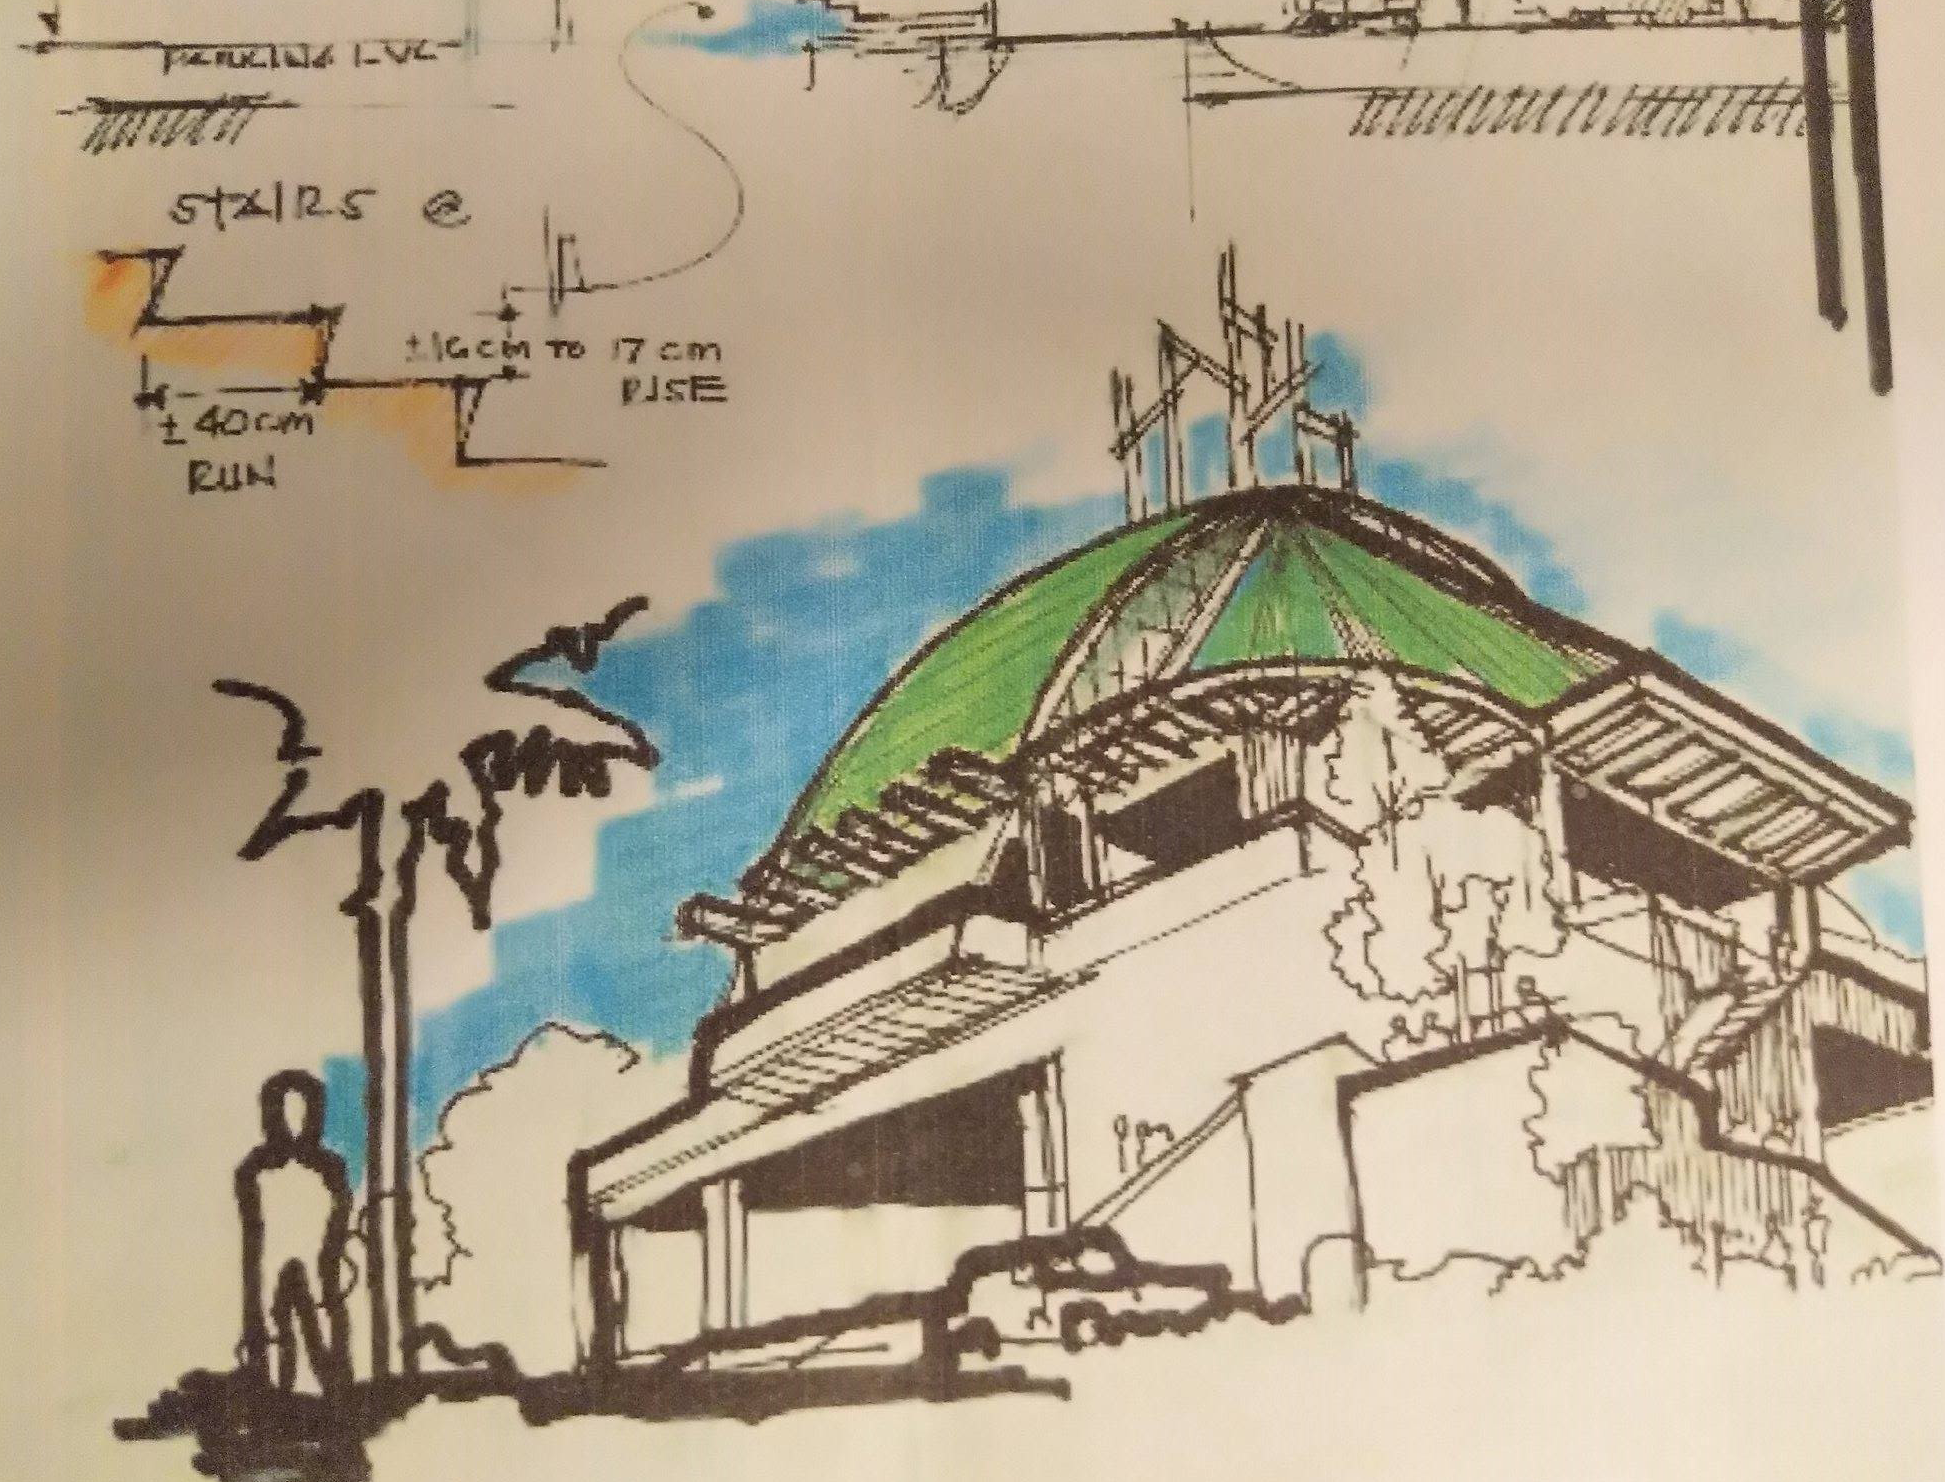 PARKING LVL
STAIRS @
±16cm TO 17cm
RISE
±40cm
RUN